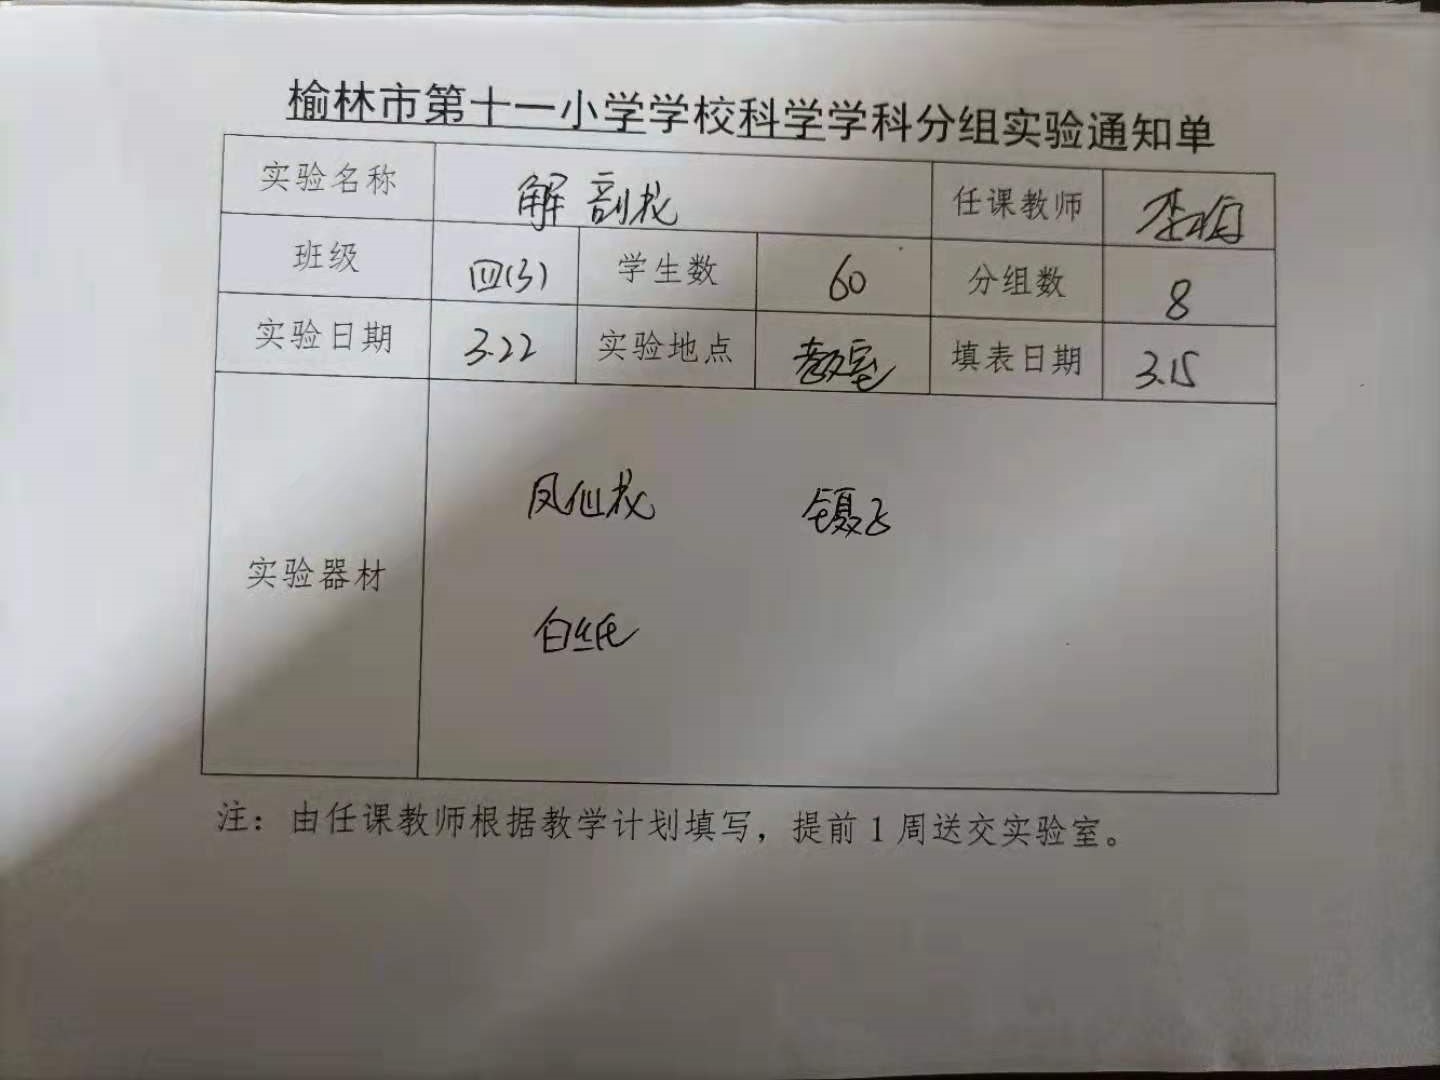 榆林市第十一小学学校科学学科分组实验通知单
实验名称 解剖花 任课教师 李梅
班级 四(3) 学生数 60 分组数 8
实验日期 3.22 实验地点 教室 填表日期 3.15
凤仙花 镊子
实验器材
白纸
注：由任课教师根据教学计划填写，提前1周送交实验室。